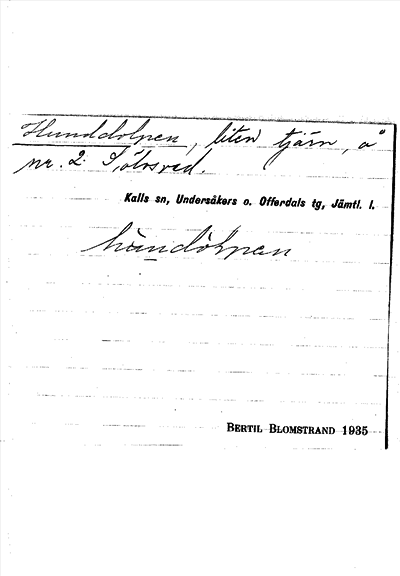 Hunddölpen, liten tjärn, å
nr. 2. Sölvsved.
Kalls sn, Undersåkers o. Offerdals tg, Jämtl. l.
hùndölpen
BERTIL BLOMSTRAND 1935